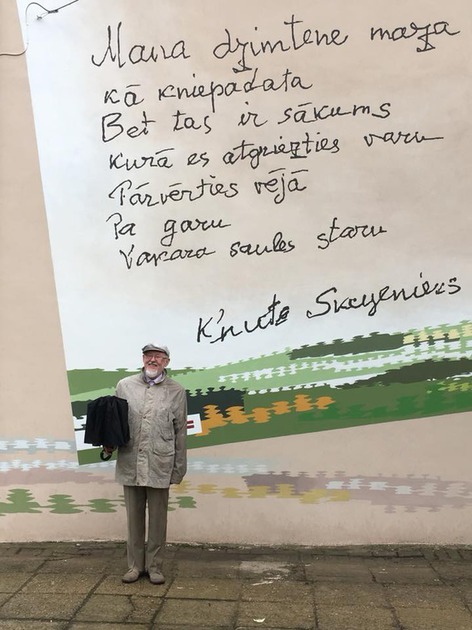 Mana dzimtene maza
kā kniepadata
Bet tas ir sākums
kurā es atgriezties varu
Pārvērties vējā
Pa garu
Vakara saules staru
Knuts Skujenieks